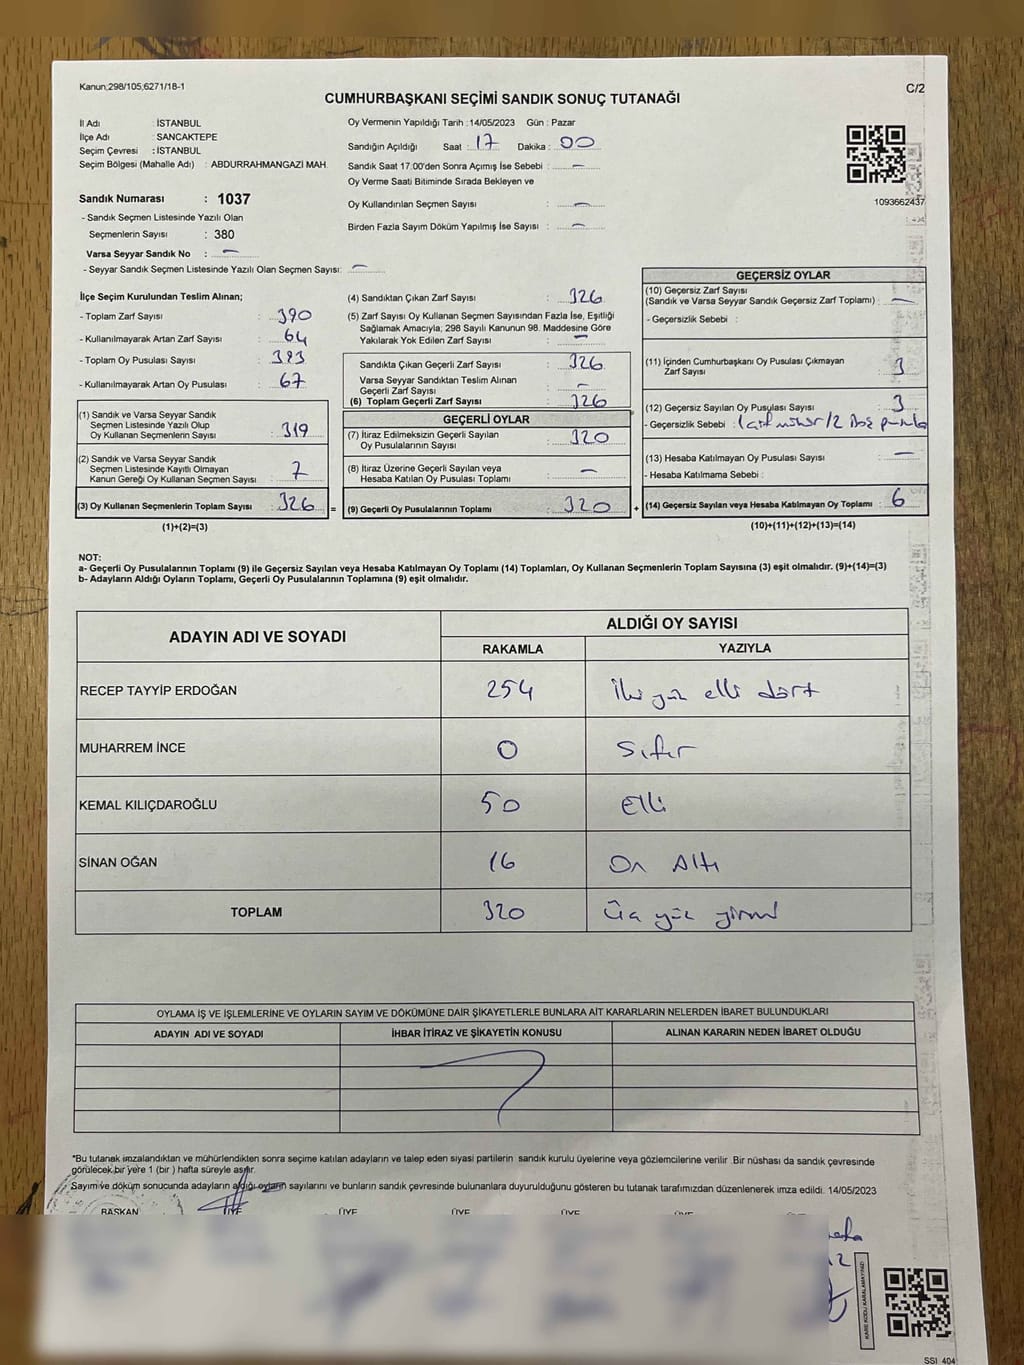 Kanun;298/105;6271/18-1
C/2
CUMHURBAŞKANI SEÇİMİ SANDIK SONUÇ TUTANAĞI
İl Adı : İSTANBUL
İlçe Adı : SANCAKTEPE
Seçim Çevresi : İSTANBUL
Seçim Bölgesi (Mahalle Adı) : ABDURRAHMANGAZİ MAH.
Sandık Numarası : 1037
- Sandık Seçmen Listesinde Yazılı Olan
Seçmenlerin Sayısı : 380
Varsa Seyyar Sandık No : -
- Seyyar Sandık Seçmen Listesinde Yazılı Olan Seçmen Sayısı: -
Oy Vermenin Yapıldığı Tarih :14/05/2023 Gün : Pazar
Sandığın Açıldığı Saat : 17 Dakika : 00
Sandık Saat 17.00'den Sonra Açımış İse Sebebi : -
Oy Verme Saati Bitiminde Sırada Bekleyen ve
Oy Kullandırılan Seçmen Sayısı : -
Birden Fazla Sayım Döküm Yapılmış İse Sayısı : -
1093662437
İlçe Seçim Kurulundan Teslim Alınan;
- Toplam Zarf Sayısı : 390
- Kullanılmayarak Artan Zarf Sayısı : 64
- Toplam Oy Pusulası Sayısı : 393
- Kullanılmayarak Artan Oy Pusulası : 67
(1) Sandık ve Varsa Seyyar Sandık
Seçmen Listesinde Yazılı Olup
Oy Kullanan Seçmenlerin Sayısı : 319
(2) Sandık ve Varsa Seyyar Sandık
Seçmen Listesinde Kayıtlı Olmayan
Kanun Gereği Oy Kullanan Seçmen Sayısı : 7
(3) Oy Kullanan Seçmenlerin Toplam Sayısı : 326
(1)+(2)=(3)
=
(4) Sandıktan Çıkan Zarf Sayısı : 326
(5) Zarf Sayısı Oy Kullanan Seçmen Sayısından Fazla İse, Eşitliği
Sağlamak Amacıyla, 298 Sayılı Kanunun 98. Maddesine Göre
Yakılarak Yok Edilen Zarf Sayısı : -
Sandıkta Çıkan Geçerli Zarf Sayısı : 326
Varsa Seyyar Sandıktan Teslim Alınan
Geçerli Zarf Sayısı : -
(6) Toplam Geçerli Zarf Sayısı : 326
GEÇERLİ OYLAR
(7) İtiraz Edilmeksizin Geçerli Sayılan
Oy Pusulalarının Sayısı : 320
(8) İtiraz Üzerine Geçerli Sayılan veya
Hesaba Katılan Oy Pusulası Toplamı : -
(9) Geçerli Oy Pusulalarının Toplamı : 320
+
GEÇERSİZ OYLAR
(10) Geçersiz Zarf Sayısı
(Sandık ve Varsa Seyyar Sandık Geçersiz Zarf Toplamı) : -
- Geçersizlik Sebebi :
(11) İçinden Cumhurbaşkanı Oy Pusulası Çıkmayan
Zarf Sayısı : 3
(12) Geçersiz Sayılan Oy Pusulası Sayısı : 3
- Geçersizlik Sebebi : 1 çift mühür/2 Boş pusula
(13) Hesaba Katılmayan Oy Pusulası Sayısı : -
- Hesaba Katılmama Sebebi :
(14) Geçersiz Sayılan veya Hesaba Katılmayan Oy Toplamı : 6
(10)+(11)+(12)+(13)=(14)
NOT:
a- Geçerli Oy Pusulalarının Toplamı (9) ile Geçersiz Sayılan veya Hesaba Katılmayan Oy Toplamı (14) Toplamları, Oy Kullanan Seçmenlerin Toplam Sayısına (3) eşit olmalıdır. (9)+(14)=(3)
b- Adayların Aldığı Oyların Toplamı, Geçerli Oy Pusulalarının Toplamına (9) eşit olmalıdır.
ADAYIN ADI VE SOYADI ALDIĞI OY SAYISI
RAKAMLA YAZIYLA
RECEP TAYYİP ERDOĞAN 254 İki yüz elli dört
MUHARREM İNCE 0 Sıfır
KEMAL KILIÇDAROĞLU 50 Elli
SİNAN OĞAN 16 On Altı
TOPLAM 320 Üç yüz yirmi
OYLAMA İŞ VE İŞLEMLERİNE VE OYLARIN SAYIM VE DÖKÜMÜNE DAİR ŞİKAYETLERLE BUNLARA AİT KARARLARIN NELERDEN İBARET BULUNDUKLARI
ADAYIN ADI VE SOYADI İHBAR İTİRAZ VE ŞİKAYETİN KONUSU ALINAN KARARIN NEDEN İBARET OLDUĞU
*Bu tutanak imzalandıktan ve mühürlendikten sonra seçime katılan adayların ve talep eden siyasi partilerin sandık kurulu üyelerine veya gözlemcilerine verilir .Bir nüshası da sandık çevresinde
görülecek bir yere 1 (bir ) hafta süreyle asılır.
Sayım ve döküm sonucunda adayların aldığı oyların sayılarını ve bunların sandık çevresinde bulunanlara duyurulduğunu gösteren bu tutanak tarafımızdan düzenlenerek imza edildi. 14/05/2023
BAŞKAN ÜYE ÜYE ÜYE ÜYE ÜYE ÜYE
KARE KODU KARALAMAYINIZ!
SSİ 404